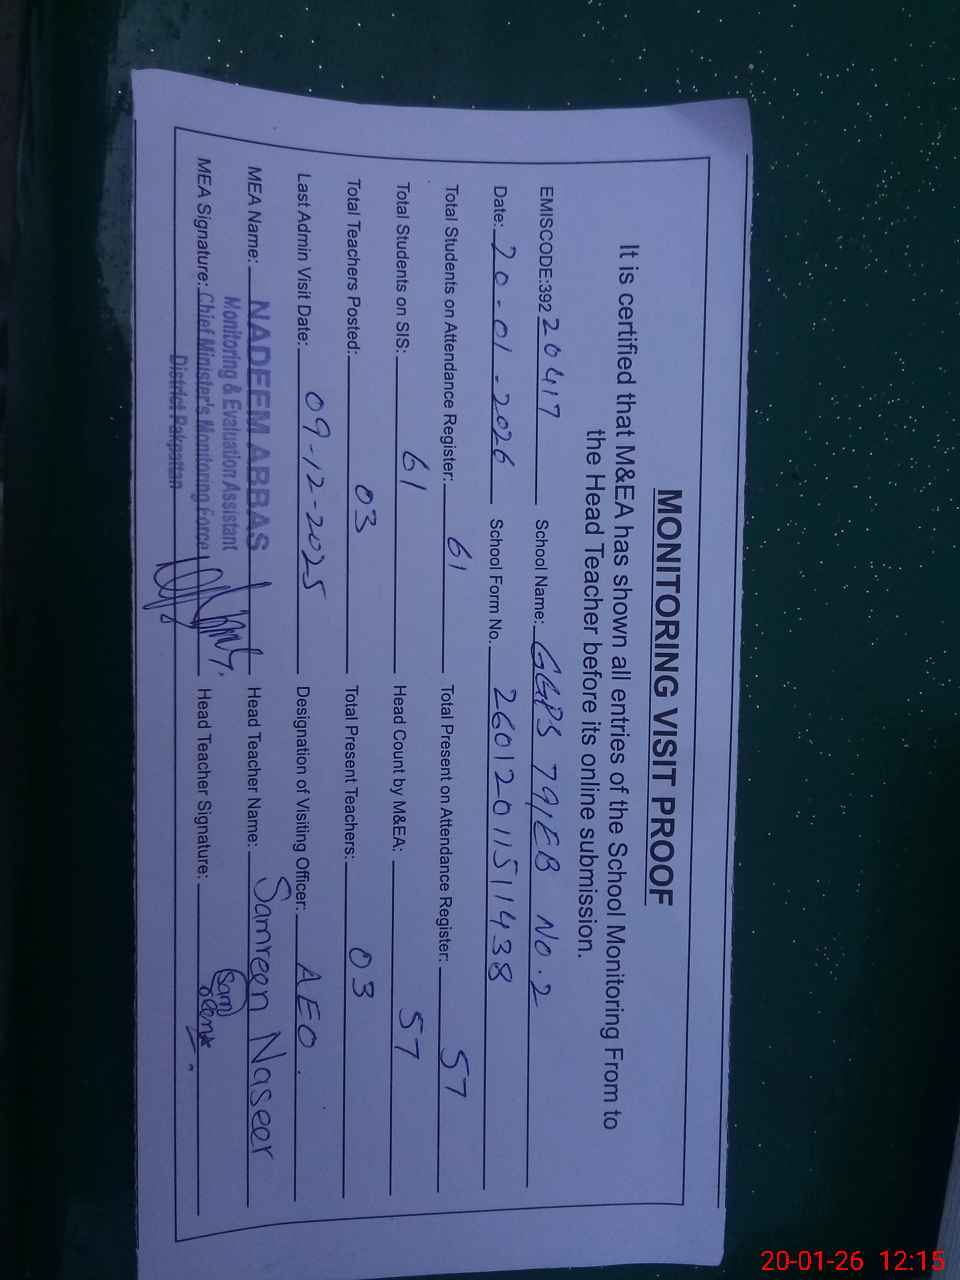 MONITORING VISIT PROOF
It is certified that M&EA has shown all entries of the School Monitoring From to
the Head Teacher before its online submission.
EMISCODE:39220417 School Name: GGPS 79/EB No.2
Date: 20-01-2026 School Form No. 26012011511438
Total Students on Attendance Register: 61 Total Present on Attendance Register: 57
Total Students on SIS: 61 Head Count by M&EA: 57
Total Teachers Posted: 03 Total Present Teachers: 03
Last Admin Visit Date: 09-12-2025 Designation of Visiting Officer: AEO.
MEA Name: NADEEM ABBAS Head Teacher Name: Samreen Naseer
Monitoring & Evaluation Assistant
MEA Signature: Chief Minister's Monitoring Force Head Teacher Signature:
District Pakpattan
20-01-26 12:15